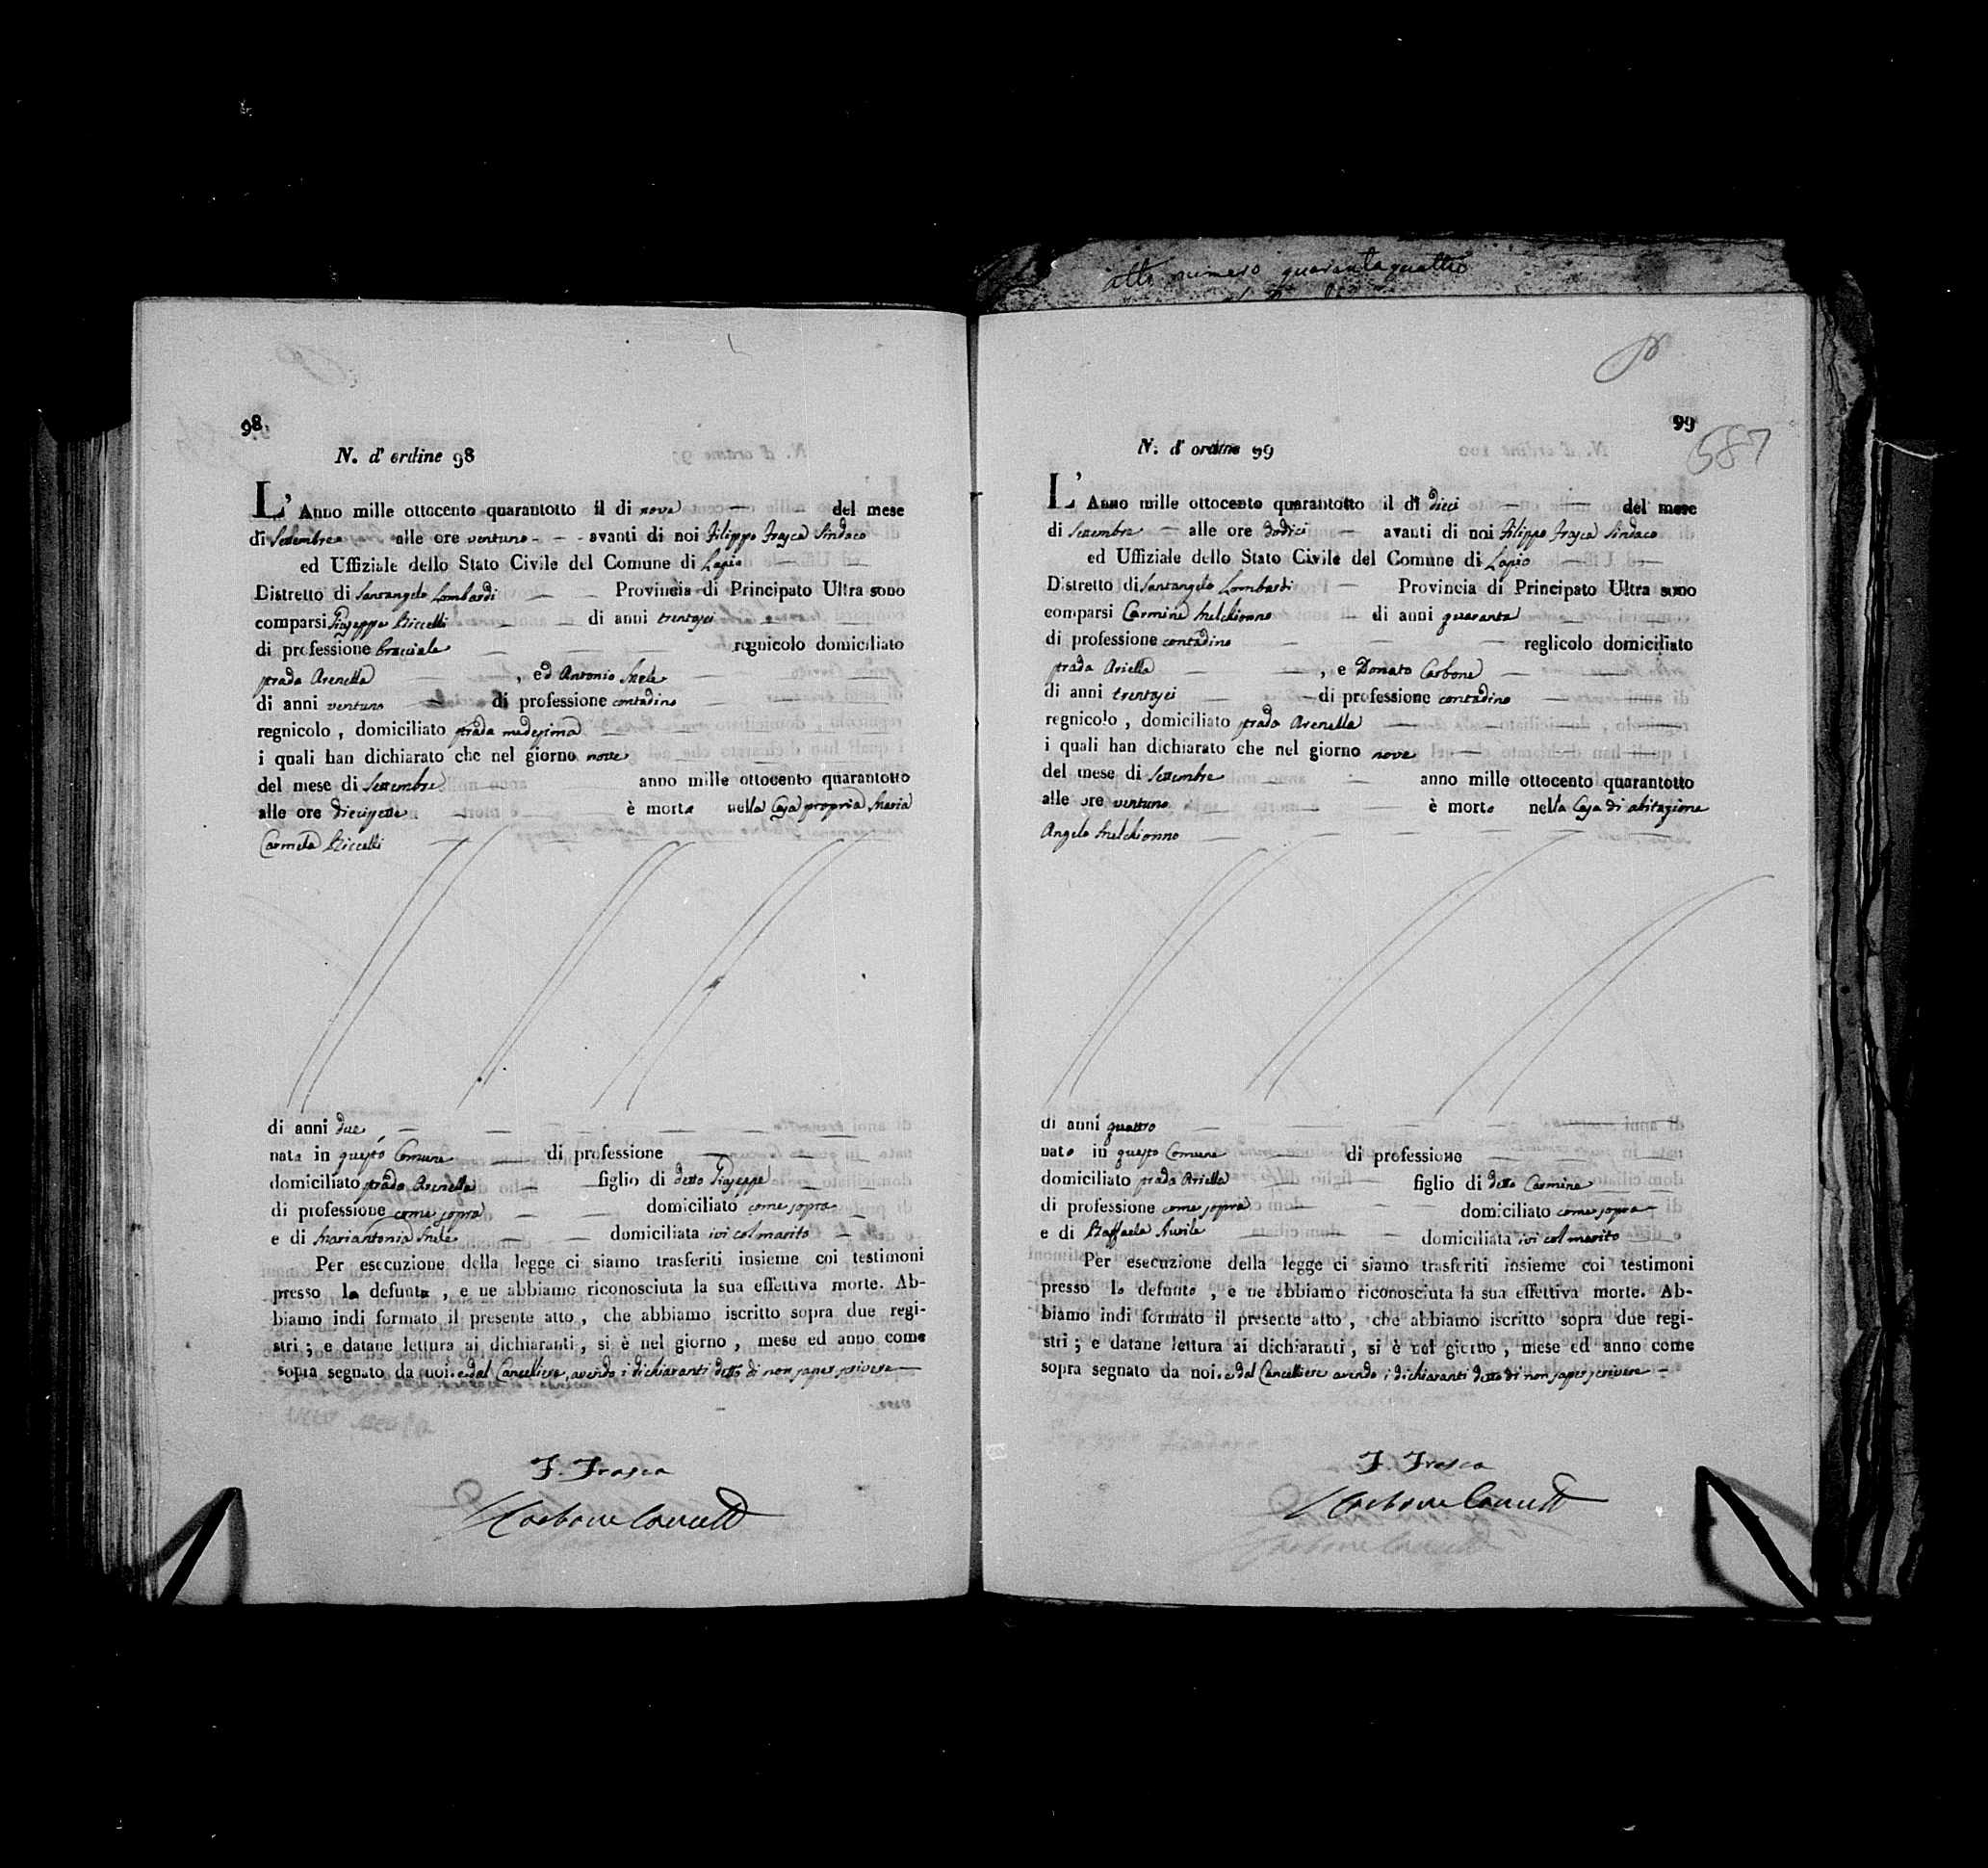 atto numero quarantaquattro
98
N. d' ordine 98
L' Anno mille ottocento quarantotto il dì nove del mese
di Settembre alle ore ventuno avanti di noi Filippo Frasca Sindaco
ed Uffiziale dello Stato Civile del Comune di Lapio
Distretto di Santangelo Lombardi Provincia di Principato Ultra sono
comparsi Giuseppe Riccelli di anni trentasei
di professione bracciale regnicolo domiciliato
strada Arenella , ed Antonio Mele
di anni ventuno di professione contadino
regnicolo , domiciliato strada medesima
i quali han dichiarato che nel giorno nove
del mese di Settembre anno mille ottocento quarantotto
alle ore diecisette è morta nella Casa propria Maria
Carmela Riccelli
di anni due
nata in questo Comune di professione
domiciliato strada Arenella figlio di detto Giuseppe
di professione come sopra domiciliato come sopra
e di Mariantonia Mele domiciliata ivi col marito
Per esecuzione della legge ci siamo trasferiti insieme coi testimoni
presso la defunta , e ne abbiamo riconosciuta la sua effettiva morte. Ab-
biamo indi formato il presente atto , che abbiamo iscritto sopra due regi-
stri ; e datane lettura ai dichiaranti , si è nel giorno , mese ed anno come
sopra segnato da noi. e dal Cancelliere, avendo i dichiaranti detto di non saper scrivere
F. Frasca
Carbone Cancell
99
587
N. d' ordine 99
L' Anno mille ottocento quarantotto il dì dieci del mese
di Settembre alle ore dodici avanti di noi Filippo Frasca Sindaco
ed Uffiziale dello Stato Civile del Comune di Lapio
Distretto di Santangelo Lombardi Provincia di Principato Ultra sono
comparsi Carmine Melchionno di anni quaranta
di professione contadino reglicolo domiciliato
strada Ariella , e Donato Carbone
di anni trentasei di professione contadino
regnicolo , domiciliato strada Arenella
i quali han dichiarato che nel giorno nove
del mese di Settembre anno mille ottocento quarantotto
alle ore ventuno è morto nella Casa di abitazione
Angelo Melchionno
di anni quattro
nato in questo Comune di professione
domiciliato strada Ariella figlio di detto Carmine
di professione come sopra domiciliato come sopra
e di Raffaela domiciliata ivi col marito
Per esecuzione della legge ci siamo trasferiti insieme coi testimoni
presso lo defunto , e ne abbiamo riconosciuta la sua effettiva morte. Ab-
biamo indi formato il presente atto , che abbiamo iscritto sopra due regi-
stri ; e datane lettura ai dichiaranti , si è nel giorno , mese ed anno come
sopra segnato da noi. e dal Cancelliere avendo i dichiaranti detto di non saper scrivere
F. Frasca
Carbone Cancell